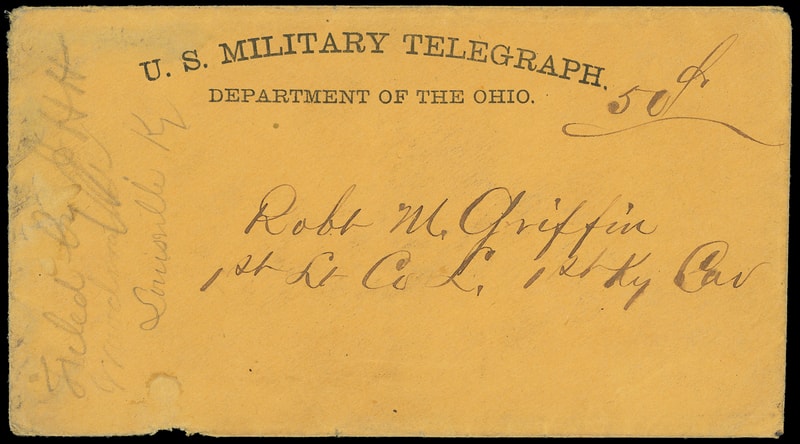 U. S. MILITARY TELEGRAPH.
DEPARTMENT OF THE OHIO.
50
Robt M. Griffin
1st Lt Co L. 1st Ky Cav
Filed by
Louisville Ky